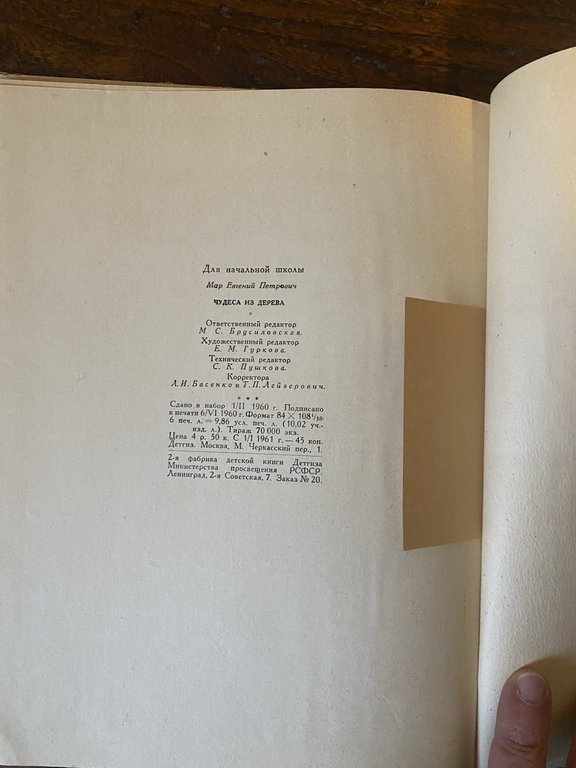 Для начальной школы
Мар Евгений Петрович
ЧУДЕСА ИЗ ДЕРЕВА
*
Ответственный редактор
М. С. Брусиловская.
Художественный редактор
Е. М. Гуркова.
Технический редактор
С. К. Пушкова.
Корректора
Л. И. Басенко и Т. П. Лейзерович.
* * *
Сдано в набор 1/II 1960 г. Подписано
к печати 6/VI 1960 г. Формат 84 × 108¹/₁₆.
6 печ. л. = 9,86 усл. печ. л. (10,02 уч.-
изд. л.). Тираж 70 000 экз.
Цена 4 р. 50 к. С 1/I 1961 г. — 45 коп.
Детгиз. Москва, М. Черкасский пер., 1.
2-я фабрика детской книги Детгиза
Министерства просвещения РСФСР.
Ленинград, 2-я Советская, 7. Заказ № 20.